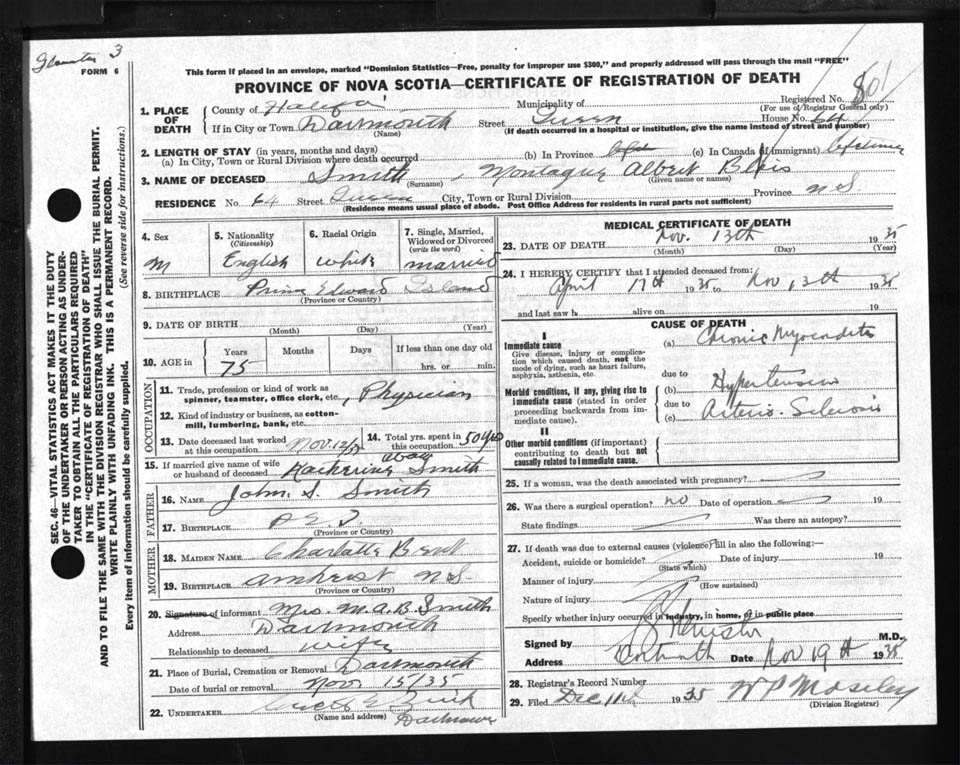 3
FORM 6
This form if placed in an envelope, marked "Dominion Statistics—Free, penalty for improper use $300," and properly addressed will pass through the mail "FREE"
PROVINCE OF NOVA SCOTIA—CERTIFICATE OF REGISTRATION OF DEATH
Registered No. 801
(For use of Registrar General only)
1. PLACE OF DEATH
County of Halifax
Municipality of
If in City or Town Dartmouth Street Queen House No. 64
(Name) (If death occurred in a hospital or institution, give the name instead of street and number)
2. LENGTH OF STAY (in years, months and days)
(a) In City, Town or Rural Division where death occurred (b) In Province (c) In Canada (if immigrant) lifetime
3. NAME OF DECEASED Smith, Montague Albert
(Surname) (Given name or names)
RESIDENCE No. 64 Street Queen City, Town or Rural Division Province N.S.
(Residence means usual place of abode. Post Office Address for residents in rural parts not sufficient)
SEC. 46—VITAL STATISTICS ACT MAKES IT THE DUTY
OF THE UNDERTAKER OR PERSON ACTING AS UNDER-
TAKER TO OBTAIN ALL THE PARTICULARS REQUIRED
IN THE "CERTIFICATE OF REGISTRATION OF DEATH"
AND TO FILE THE SAME WITH THE DIVISION REGISTRAR WHO SHALL ISSUE THE BURIAL PERMIT.
WRITE PLAINLY WITH UNFADING INK. THIS IS A PERMANENT RECORD.
Every item of information should be carefully supplied. (See reverse side for instructions.)
4. Sex
M
5. Nationality
(Citizenship)
English
6. Racial Origin
White
7. Single, Married,
Widowed or Divorced
(write the word)
married
8. BIRTHPLACE Prince Edward Island
(Province or Country)
9. DATE OF BIRTH
(Month) (Day) (Year)
10. AGE in Years Months Days If less than one day old
75 hrs. or min.
OCCUPATION
11. Trade, profession or kind of work as
spinner, teamster, office clerk, etc., Physician
12. Kind of industry or business, as cotton-
mill, lumbering, bank, etc.
13. Date deceased last worked
at this occupation Nov. 12/35
14. Total yrs. spent in
this occupation 50 yrs
15. If married give name of wife
or husband of deceased Smith
FATHER
16. NAME John S. Smith
17. BIRTHPLACE P.E.I.
(Province or Country)
MOTHER
18. MAIDEN NAME Charlotte Bent
19. BIRTHPLACE Amherst N.S.
(Province or Country)
20. Signature of informant Mrs. M.A.B. Smith
Address Dartmouth
Relationship to deceased wife
21. Place of Burial, Cremation or Removal Dartmouth
Date of burial or removal Nov 15/35
22. UNDERTAKER Zink
(Name and address) Dartmouth
MEDICAL CERTIFICATE OF DEATH
23. DATE OF DEATH Nov. 13th 1935
(Month) (Day) (Year)
24. I HEREBY CERTIFY that I attended deceased from:
April 17th 1935 to Nov 13th 1935
and last saw h alive on 19
CAUSE OF DEATH
I
Immediate cause
Give disease, injury or complica-
tion which caused death, not the
mode of dying, such as heart failure,
asphyxia, asthenia, etc.
(a) Chronic Myocarditis
due to
Morbid conditions, if any, giving rise to
immediate cause (stated in order
proceeding backwards from im-
mediate cause).
(b) Hypertension
due to
(c) Arterio-Sclerosis
II
Other morbid conditions (if important)
contributing to death but not
causally related to immediate cause.
25. If a woman, was the death associated with pregnancy?
26. Was there a surgical operation? no Date of operation 19
State findings Was there an autopsy?
27. If death was due to external causes (violence) fill in also the following:—
Accident, suicide or homicide? Date of injury 19
(State which)
Manner of injury
(How sustained)
Nature of injury
Specify whether injury occurred in industry, in home, or in public place
Signed by M.D.
Address Dartmouth Date Nov 19th 1935
28. Registrar's Record Number
29. Filed Dec 1935 W P Moseley
(Division Registrar)